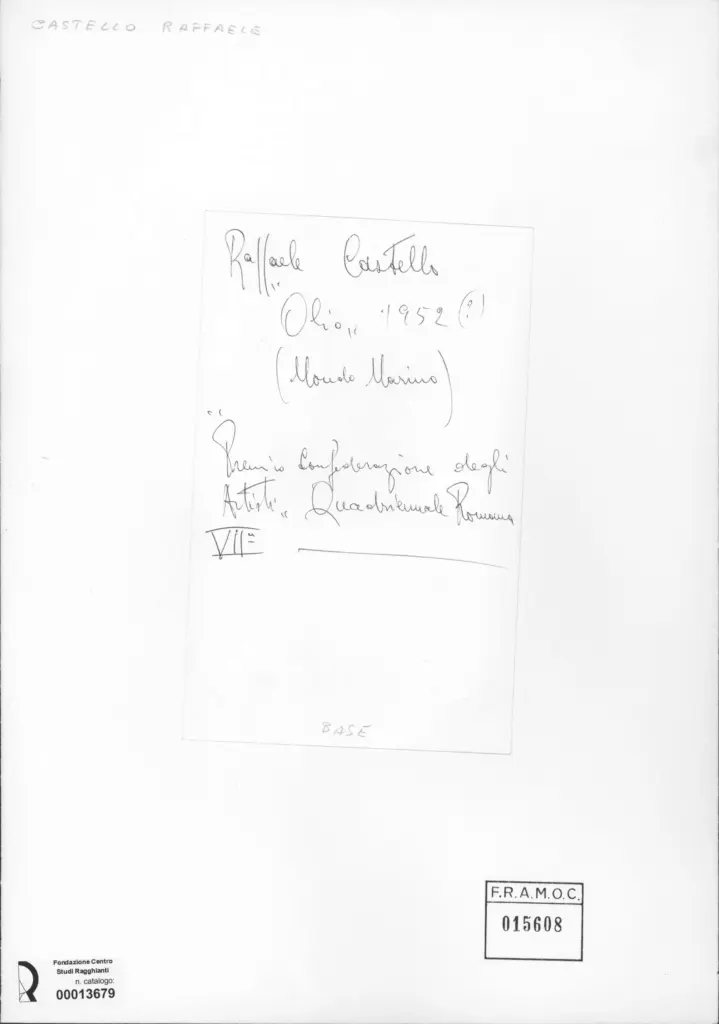 CASTELLO RAFFAELE
Raffaele Castello
"Olio„ 1952 (?)
(Mondo Marino)
"Premio Confederazione degli
Artisti„ Quadriennale Romana
VIIª
BASE
F.R.A.M.O.C.
015608
Fondazione Centro
Studi Ragghianti
n. catalogo:
00013679